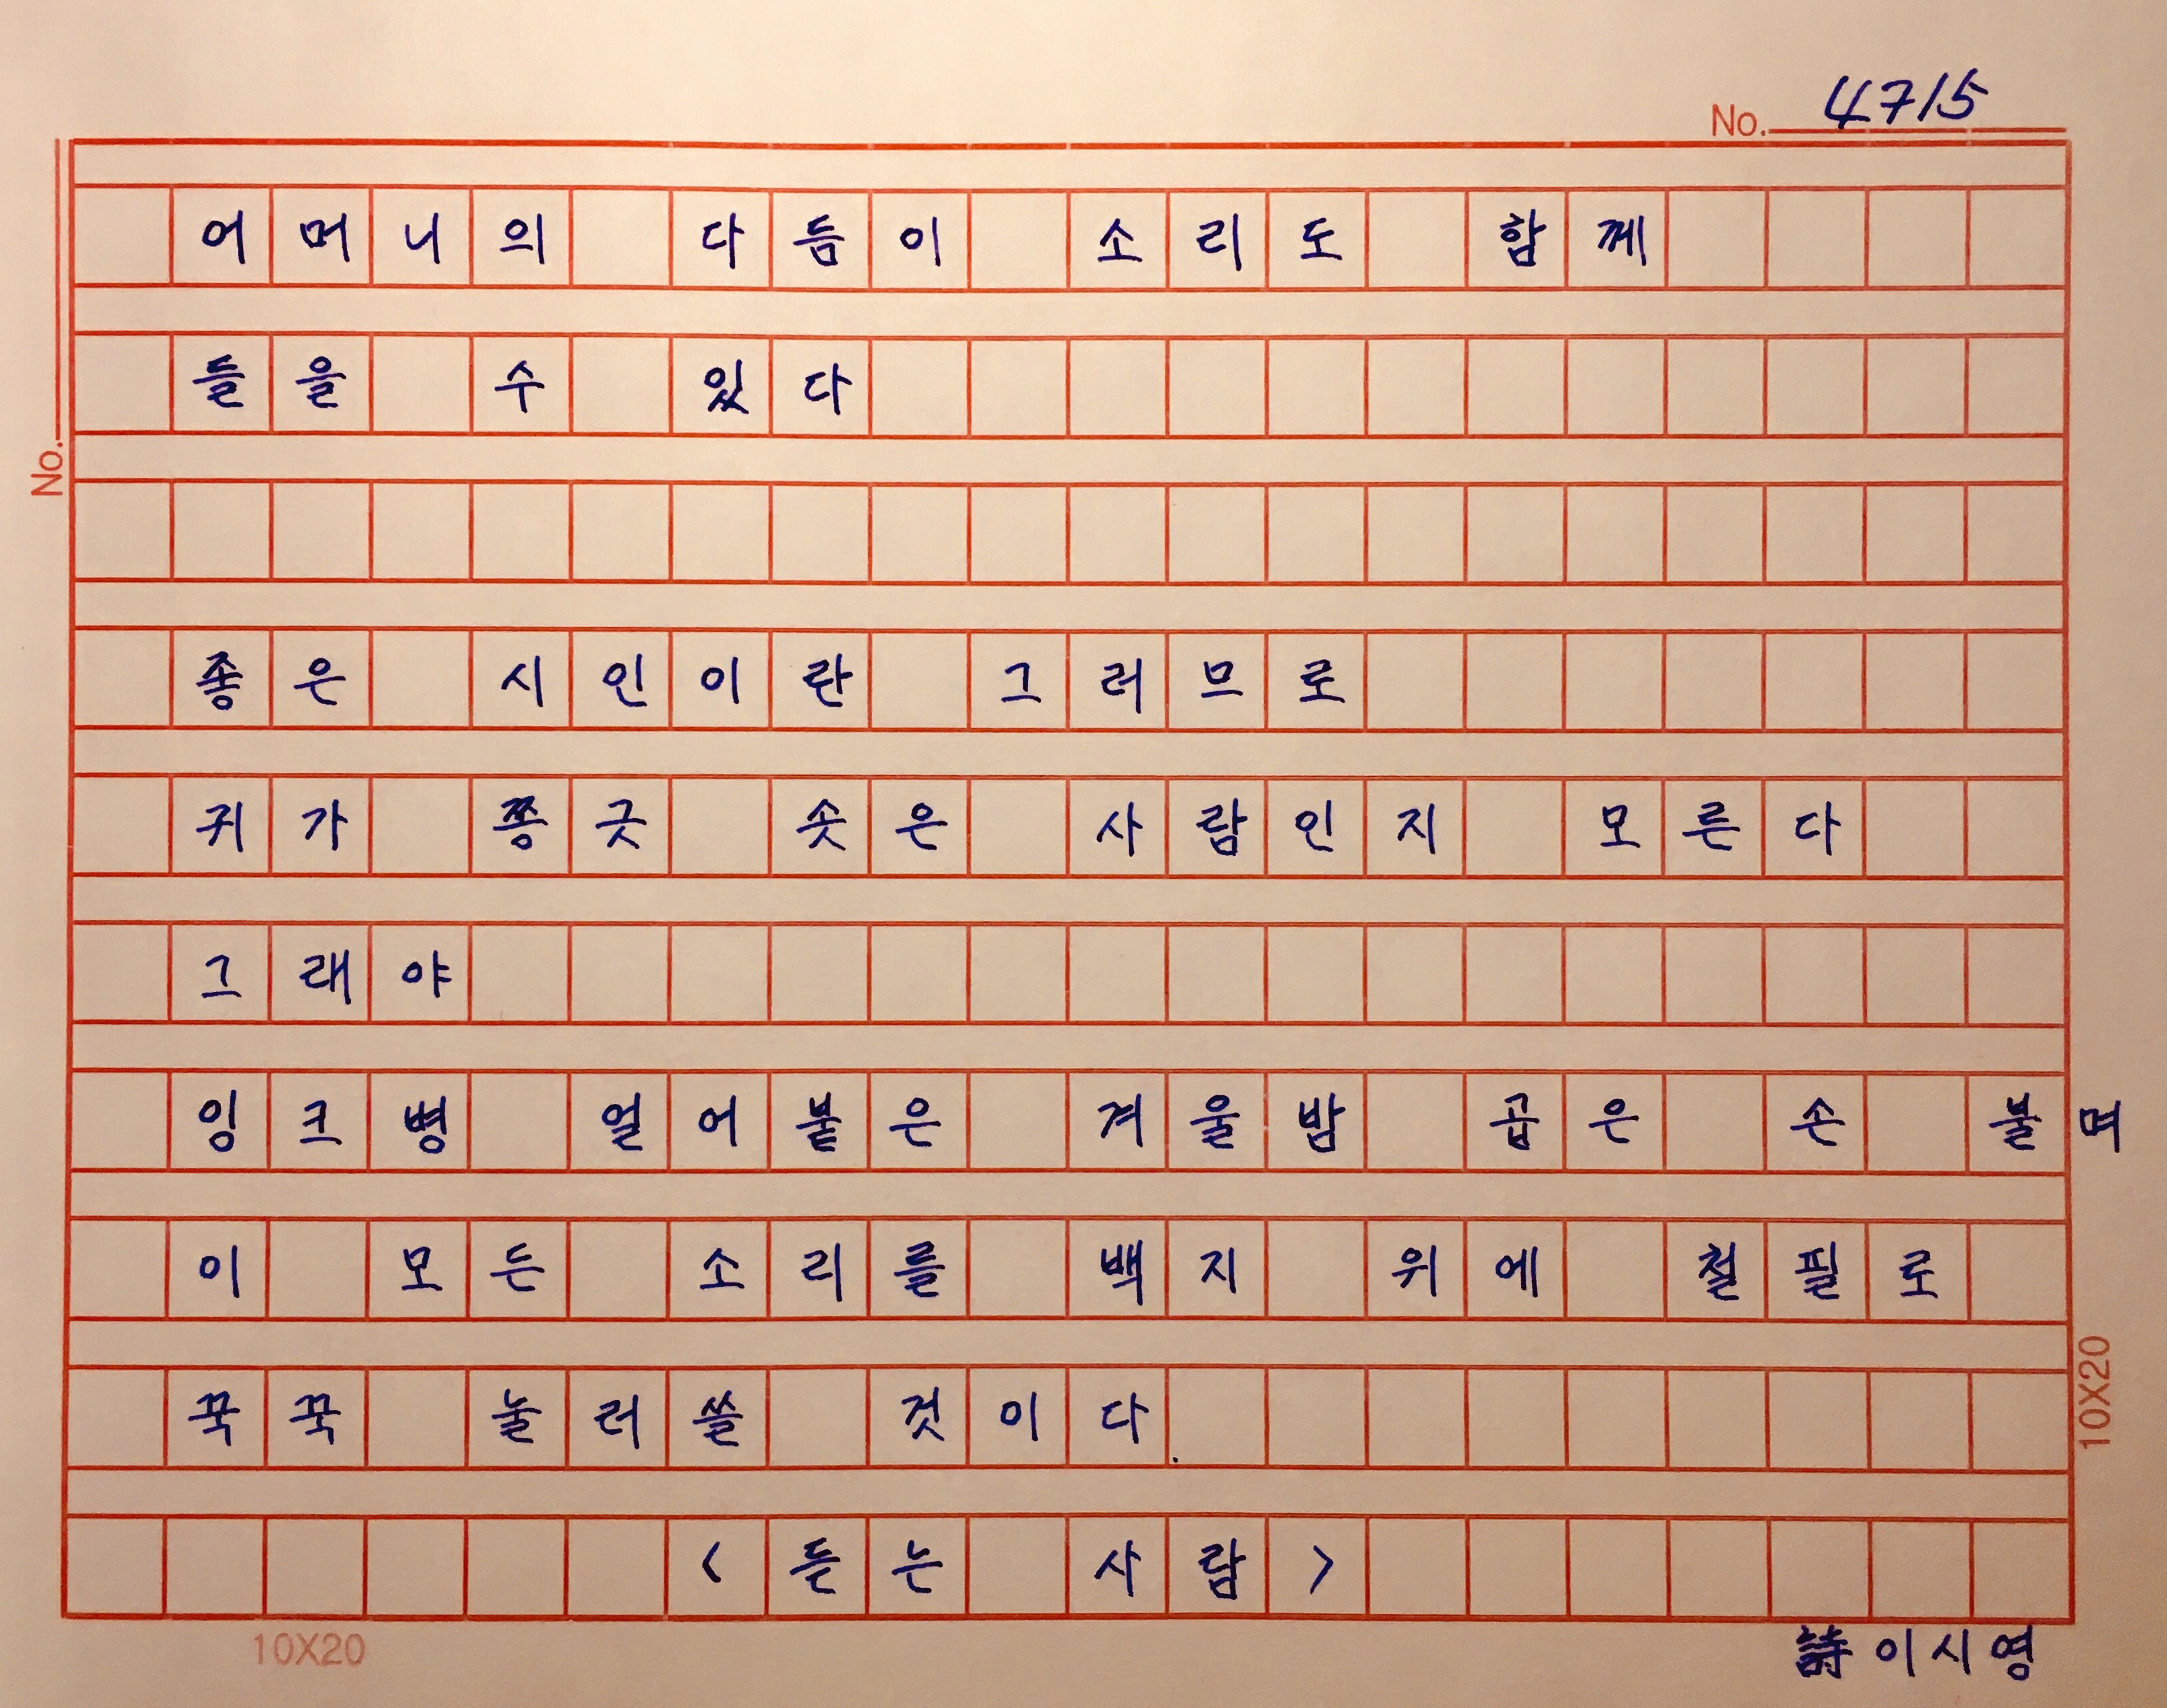 No. 4715
어머니의 다듬이 소리도 함께
들을 수 있다
No.
좋은 시인이란 그러므로
귀가 쫑긋 솟은 사람인지 모른다
그래야
잉크병 얼어붙은 겨울밤 곱은 손 불며
이 모든 소리를 백지 위에 철필로
꾹꾹 눌러쓸 것이다.
10X20
<듣는 사람>
10X20
詩 이시영